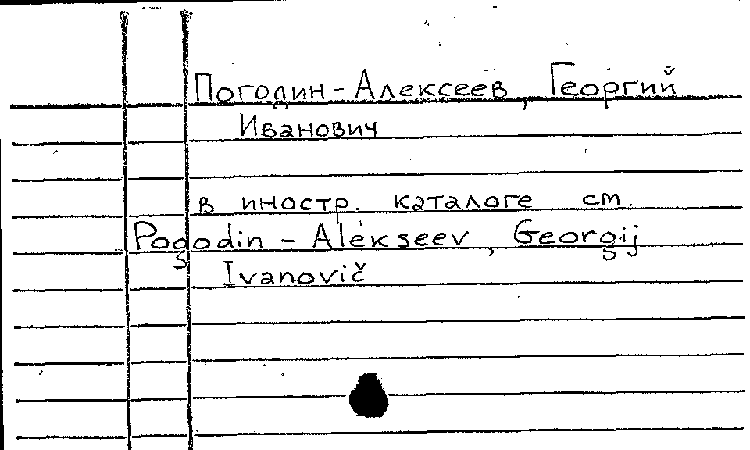 Погодин-Алексеев, Георгий
Иванович
в иностр. каталоге см.
Pogodin - Alekseev, Georgij
Ivanovič